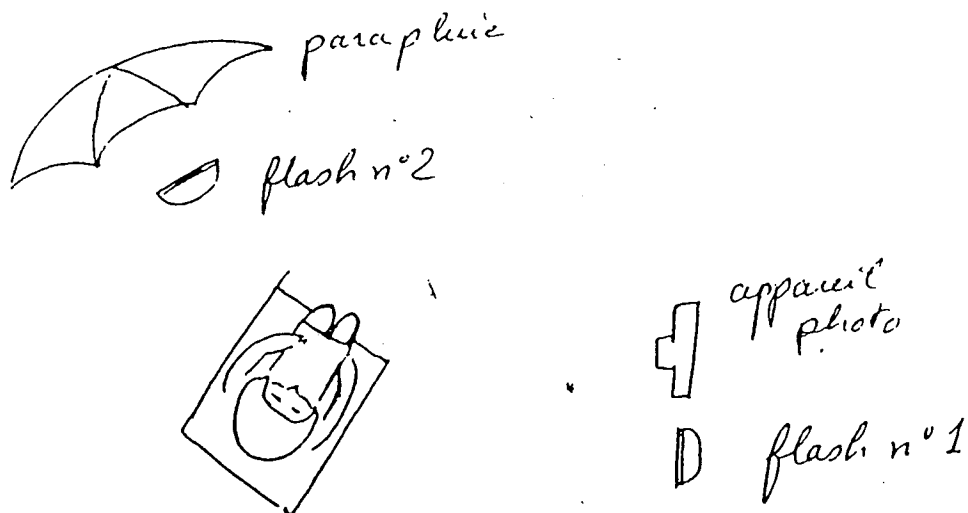 parapluie
flash n°2
appareil
photo
flash n°1